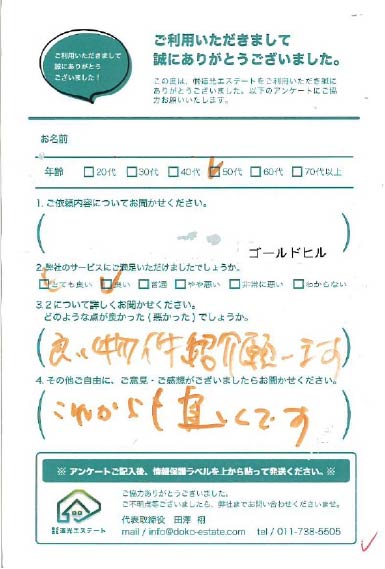 ご利用いただきまして
誠にありがとう
ございました！
ご利用いただきまして
誠にありがとうございました。
この度は、㈱道光エステートをご利用いただき誠に
ありがとうございました。以下のアンケートにご協
力お願いいたします。
お名前
年齢 □20代 □30代 □40代 □50代 □60代 □70代以上
1. ご依頼内容についてお聞かせください。
ゴールドヒル
2. 弊社のサービスにご満足いただけましたでしょうか。
□とても良い □良い □普通 □やや悪い □非常に悪い □わからない
3. 2について詳しくお聞かせください。
どのような点が良かった(悪かった)でしょうか。
良い物件紹介願います
4. その他ご自由に、ご意見・ご感想がございましたらお聞かせください。
これからも宜しくです
※ アンケートご記入後、情報保護ラベルを上から貼って発送ください。※
ご協力ありがとうございました。
ご不明点等ございましたら、弊社までお問い合わせくださいませ。
代表取締役 田澤 翔
mail / info@doko-estate.com tel / 011-738-5505
道光エステート